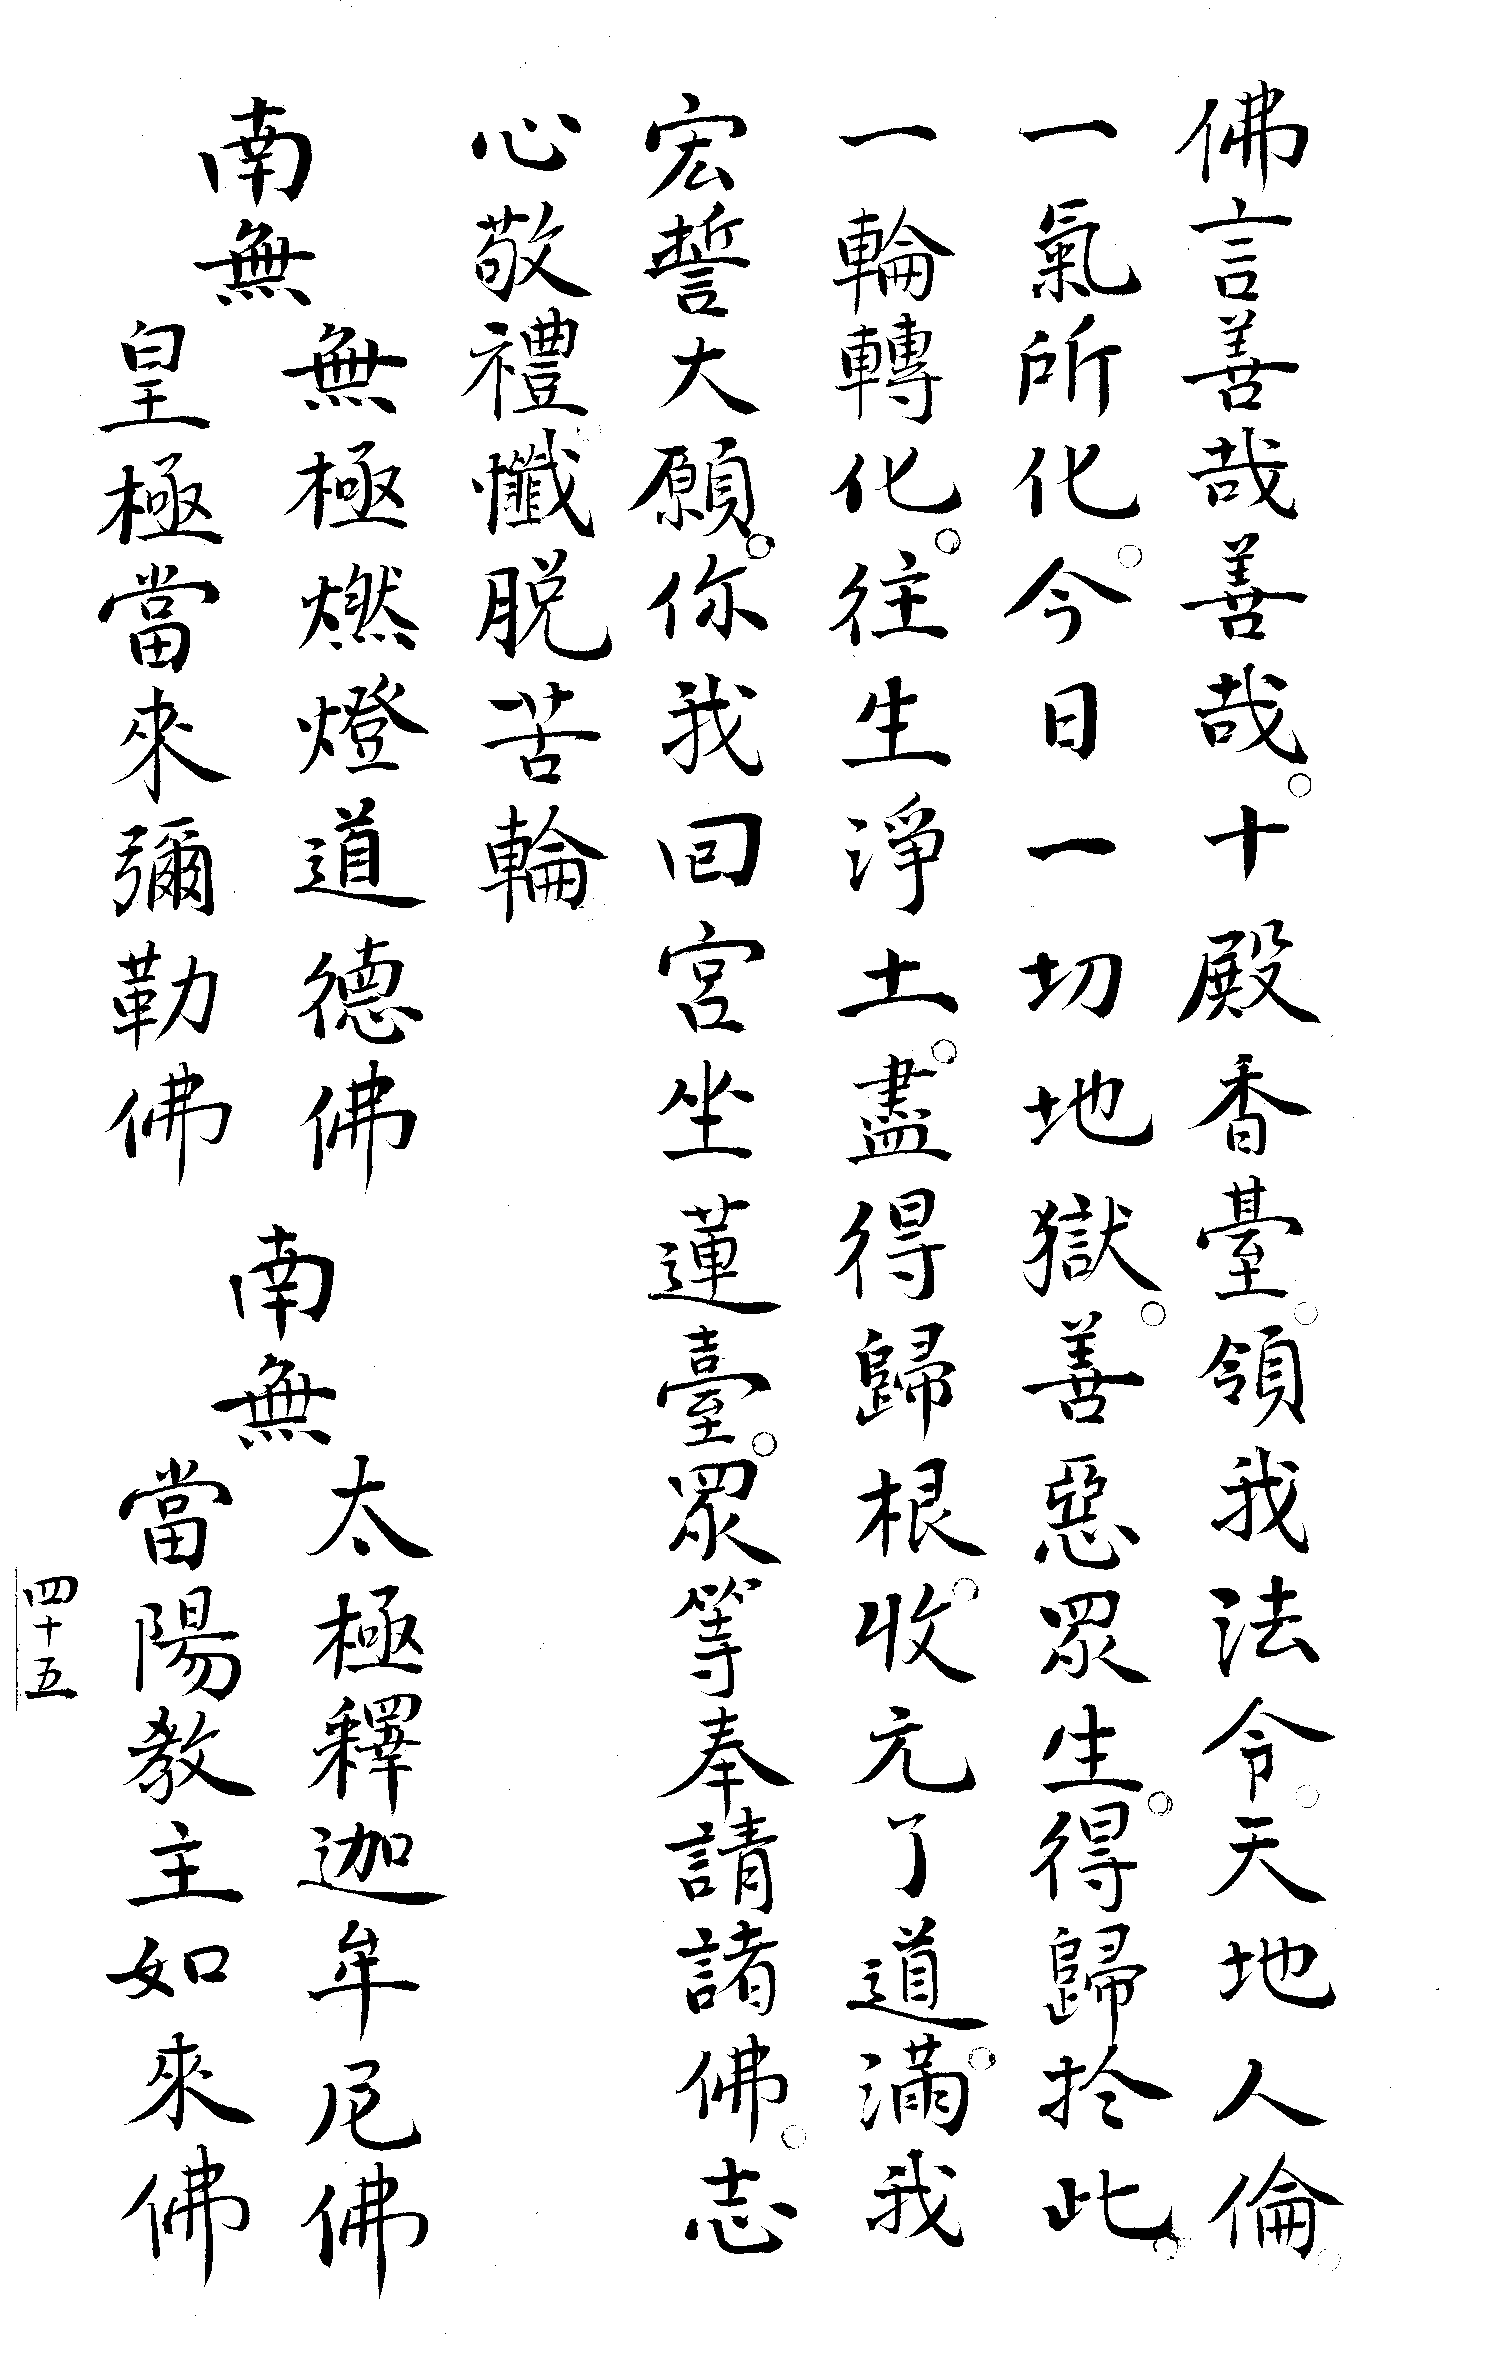 佛言善哉善哉。十殿香臺。領我法令。天地人倫。
一氣所化。今日一切地獄。善惡眾生。得歸於此。
一輪轉化。往生淨土。盡得歸根。收元了道。滿我
宏誓大願。你我回宮坐蓮臺。眾等奉請諸佛。志
心敬禮懺脫苦輪
南無
無極燃燈道德佛
皇極當來彌勒佛
南無
太極釋迦牟尼佛
當陽教主如來佛
四十五